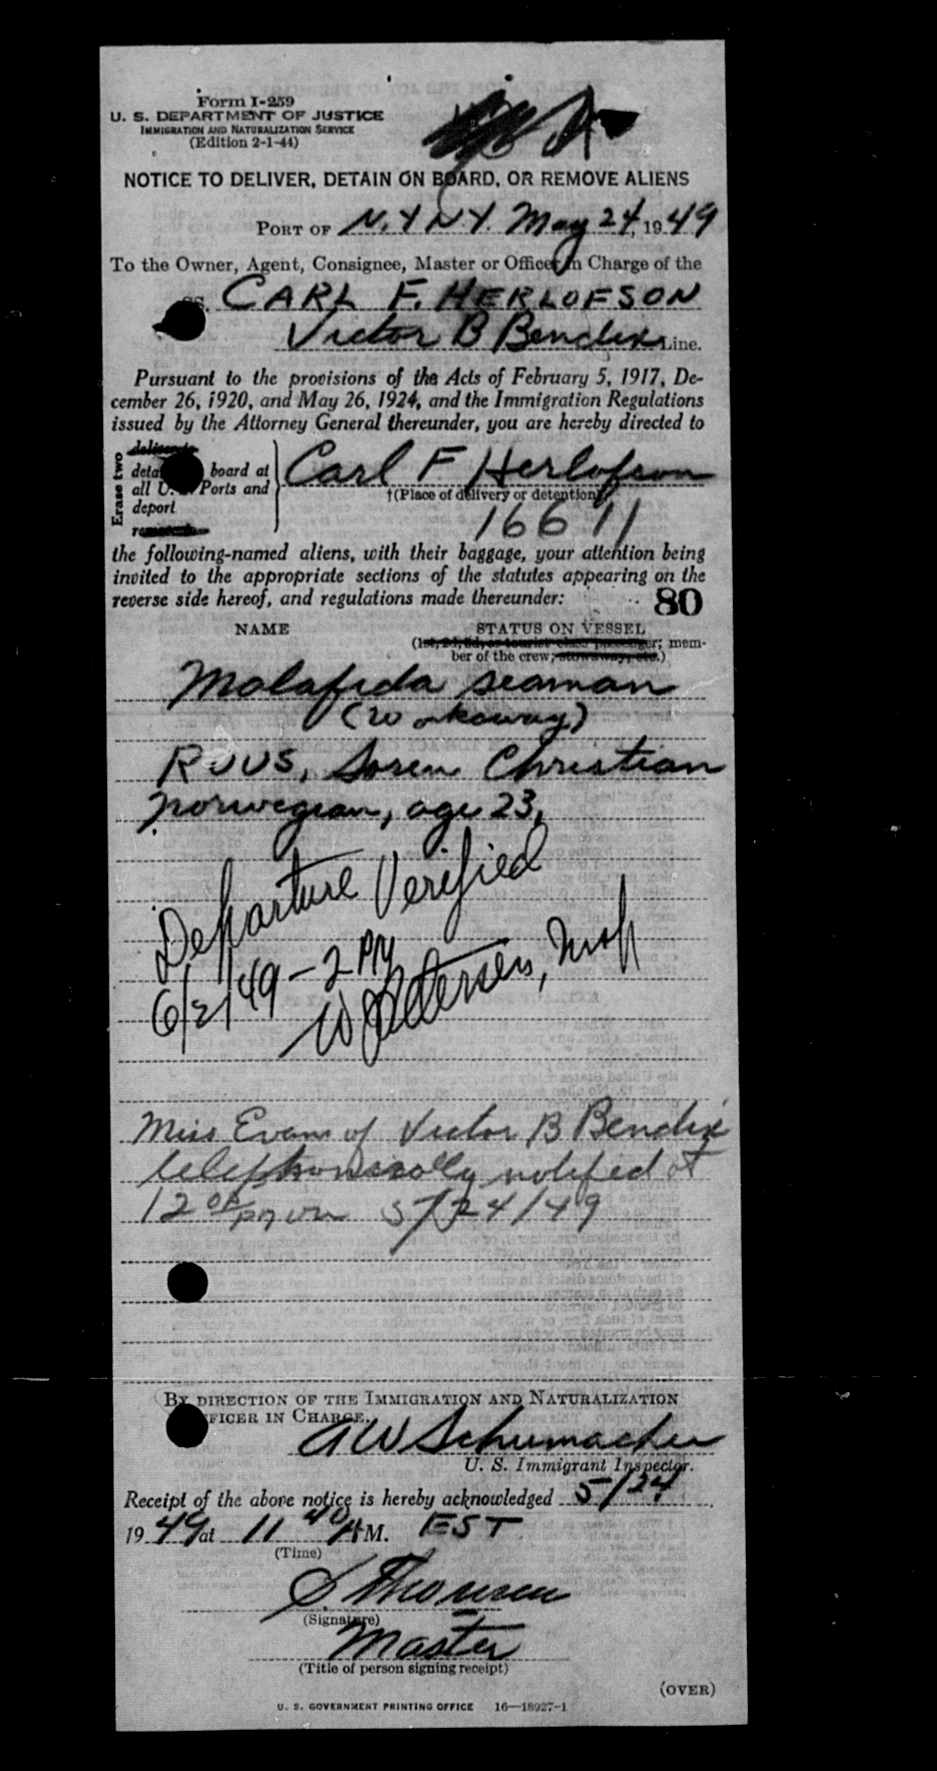 Form I-259
U. S. DEPARTMENT OF JUSTICE
IMMIGRATION AND NATURALIZATION SERVICE
(Edition 2-1-44)
NOTICE TO DELIVER, DETAIN ON BOARD, OR REMOVE ALIENS
PORT OF N.Y. N.Y. May 24, 1949
To the Owner, Agent, Consignee, Master or Officer in Charge of the
SS. CARL F. HERLOFSON
Victor B Bendix Line.
Pursuant to the provisions of the Acts of February 5, 1917, De-
cember 26, 1920, and May 26, 1924, and the Immigration Regulations
issued by the Attorney General thereunder, you are hereby directed to
Erase two
board at
all U. Ports and
deport
Carl F Herlofson
†(Place of delivery or detention)
16611
the following-named aliens, with their baggage, your attention being
invited to the appropriate sections of the statutes appearing on the
reverse side hereof, and regulations made thereunder:
80
NAME STATUS ON VESSEL
(1st, 2d, 3d, or tourist class passenger; mem-
ber of the crew; stowaway, etc.)
Malafida seaman
(workaway)
RUUS, Soren Christian
Norwegian, age 23,
Departure Verified
6/2/49 - 2 PM
W Petersen,
Miss Evans of Victor B Bendix
telephonically notified at
12 PM on 5/24/49
BY DIRECTION OF THE IMMIGRATION AND NATURALIZATION
OFFICER IN CHARGE.
A W Schumacher
U. S. Immigrant Inspector.
Receipt of the above notice is hereby acknowledged 5/24
1949 at 11 40 A M. EST
(Time)
S Thomsen
(Signature)
Master
(Title of person signing receipt)
(OVER)
U. S. GOVERNMENT PRINTING OFFICE 16—18927-1